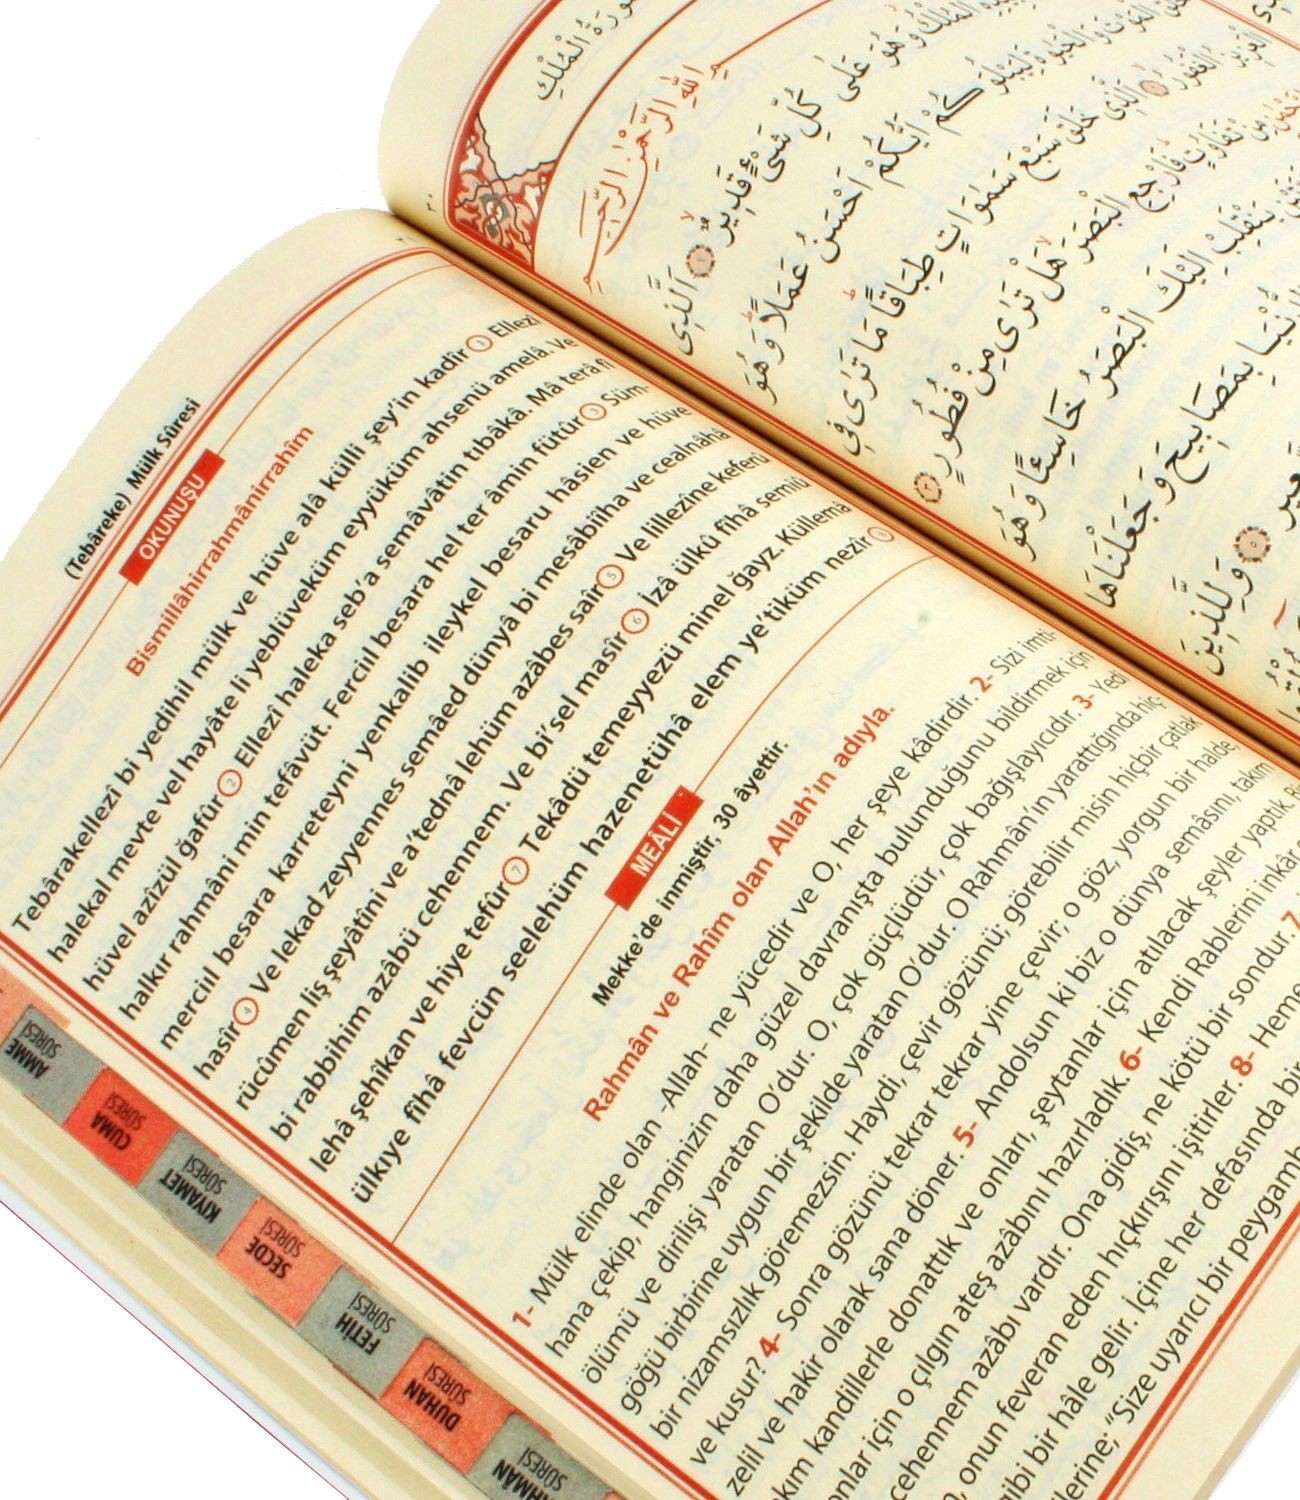 (Tebâreke) Mülk Sûresi
OKUNUŞU
Bismillâhirrahmânirrahîm
Tebârakellezî bi yedihil mülk ve hüve alâ külli şey'in kadîr 1 Ellezî
halekal mevte vel hayâte li yeblüveküm eyyüküm ahsenü amelâ. Ve
hüvel azîzül ğafûr 2 Ellezî haleka seb'a semâvâtin tıbâkâ. Mâ terâ fî
halkır rahmâni min tefâvüt. Ferciıl besara hel ter âmin fütûr 3 Süm-
merciıl besara karreteyni yenkalib ileykel besaru hâsien ve hüve
hasîr 4 Ve lekad zeyyennes semâed dünyâ bi mesâbîiha ve cealnâhâ
rücûmen liş şeyâtîni ve a'tednâ lehüm azâbes saîr 5 Ve lillezîne keferû
bi rabbihim azâbü cehennem. Ve bi'sel masîr 6 İzâ ülkû fîhâ semiû
lehâ şehîkan ve hiye tefûr 7 Tekâdü temeyyezü minel ğayz. Küllemâ
ülkıye fîhâ fevcün seelehüm hazenetühâ elem ye'tiküm nezîr 8
MEÂLİ
Mekke'de inmiştir, 30 âyettir.
Rahmân ve Rahîm olan Allah'ın adıyla.
1- Mülk elinde olan -Allah- ne yücedir ve O, her şeye kâdirdir. 2- Sizi imti-
hana çekip, hanginizin daha güzel davranışta bulunduğunu bildirmek için
ölümü ve dirilişi yaratan O'dur. O, çok güçlüdür, çok bağışlayıcıdır. 3- Yedi
göğü birbirine uygun bir şekilde yaratan O'dur. O Rahmân'ın yarattığında hiç-
bir nizamsızlık göremezsin. Haydi, çevir gözünü; görebilir misin hiçbir çatlak
ve kusur? 4- Sonra gözünü tekrar tekrar yine çevir; o göz, yorgun bir halde,
zelil ve hakir olarak sana döner. 5- Andolsun ki biz o dünya semâsını, takım
kım kandillerle donattık ve onları, şeytanlar için atılacak şeyler yaptık.
onlar için o çılgın ateş azâbını hazırladık. 6- Kendi Rablerini inkâr
cehennem azâbı vardır. Ona gidiş, ne kötü bir sondur. 7
onun feveran eden hıçkırışını işitirler. 8- Heme
gibi bir hâle gelir. İçine her defasında bir
lerine; "Size uyarıcı bir peygamb
AMME SÛRESİ
CUMA SÛRESİ
KIYAMET SÛRESİ
SECDE SÛRESİ
FETİH SÛRESİ
DUHAN SÛRESİ
HMÂN SÛRESİ
سُورَةُ الْمُلْكِ
بِسْمِ اللّٰهِ الرَّحْمٰنِ الرَّحِيمِ
الْمُلْكُ وَهُوَ عَلٰى كُلِّ شَيْءٍ قَدِيرٌ ١ اَلَّذِى
الْمَوْتَ وَالْحَيٰوةَ لِيَبْلُوَكُمْ اَيُّكُمْ اَحْسَنُ عَمَلًا وَهُوَ
الْعَزِيزُ الْغَفُورُ ٢ اَلَّذِى خَلَقَ سَبْعَ سَمٰوَاتٍ طِبَاقًا مَا تَرٰى فِى
مِنْ تَفَاوُتٍ فَارْجِعِ الْبَصَرَ هَلْ تَرٰى مِنْ فُطُورٍ ٣
يَنْقَلِبْ اِلَيْكَ الْبَصَرُ خَاسِئًا وَهُوَ
الدُّنْيَا بِمَصَابِيحَ وَجَعَلْنَاهَا
السَّعِيرِ ٥ وَلِلَّذِينَ